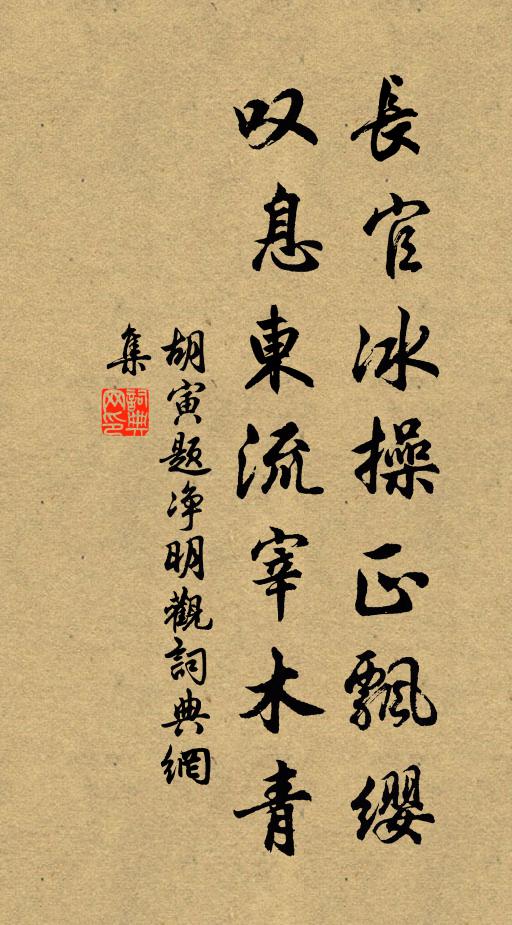 長官冰操正飄纓
叹息東流宰木青
胡寅题净明觀詞典網
集
詞典網印